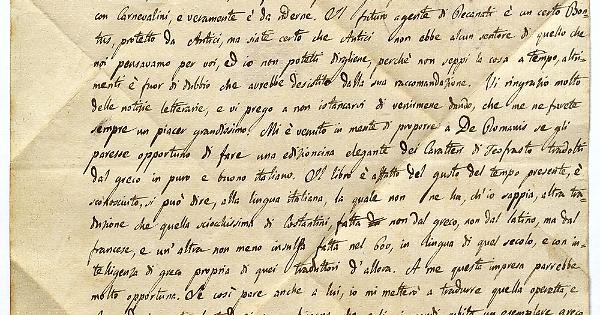 con Carnevalini, e veramente è da riderne. Il futuro agente di Recanati è un certo Bon-
tus, protetto da Antici, ma siate certo che Antici non ebbe alcun sentore di quello che
noi pensavamo per voi, ed io non potetti dirgliene, perchè non seppi la cosa a tempo, altri-
menti è fuor di dubbio che avrebbe desistito dalla sua raccomandazione. Vi ringrazio molto
delle notizie letterarie, e vi prego a non istancarvi di venirmene dando, che me ne farete
sempre un piacer grandissimo. Mi è venuto in mente di proporre a De Romanis se gli
paresse opportuno di fare una edizioncina elegante dei Caratteri di Teofrasto tradotti
dal greco in puro e buono italiano. Il libro è affatto del gusto del tempo presente, è
sconosciuto, si può dire, alla lingua italiana, la quale non ne ha, ch'io sappia, altra tra-
duzione che quella sciocchissima di Costantini, fatta non dal greco, non dal latino, ma dal
francese, e un'altra non meno insulsa fatta nel 600, in lingua di quel secolo, e con in-
telligenza di greco propria di quei traduttori d'allora. A me questa impresa parrebbe
molto opportuna. Se così pare anche a lui, io mi metterò a tradurre quella operetta, e
un esemplare greco